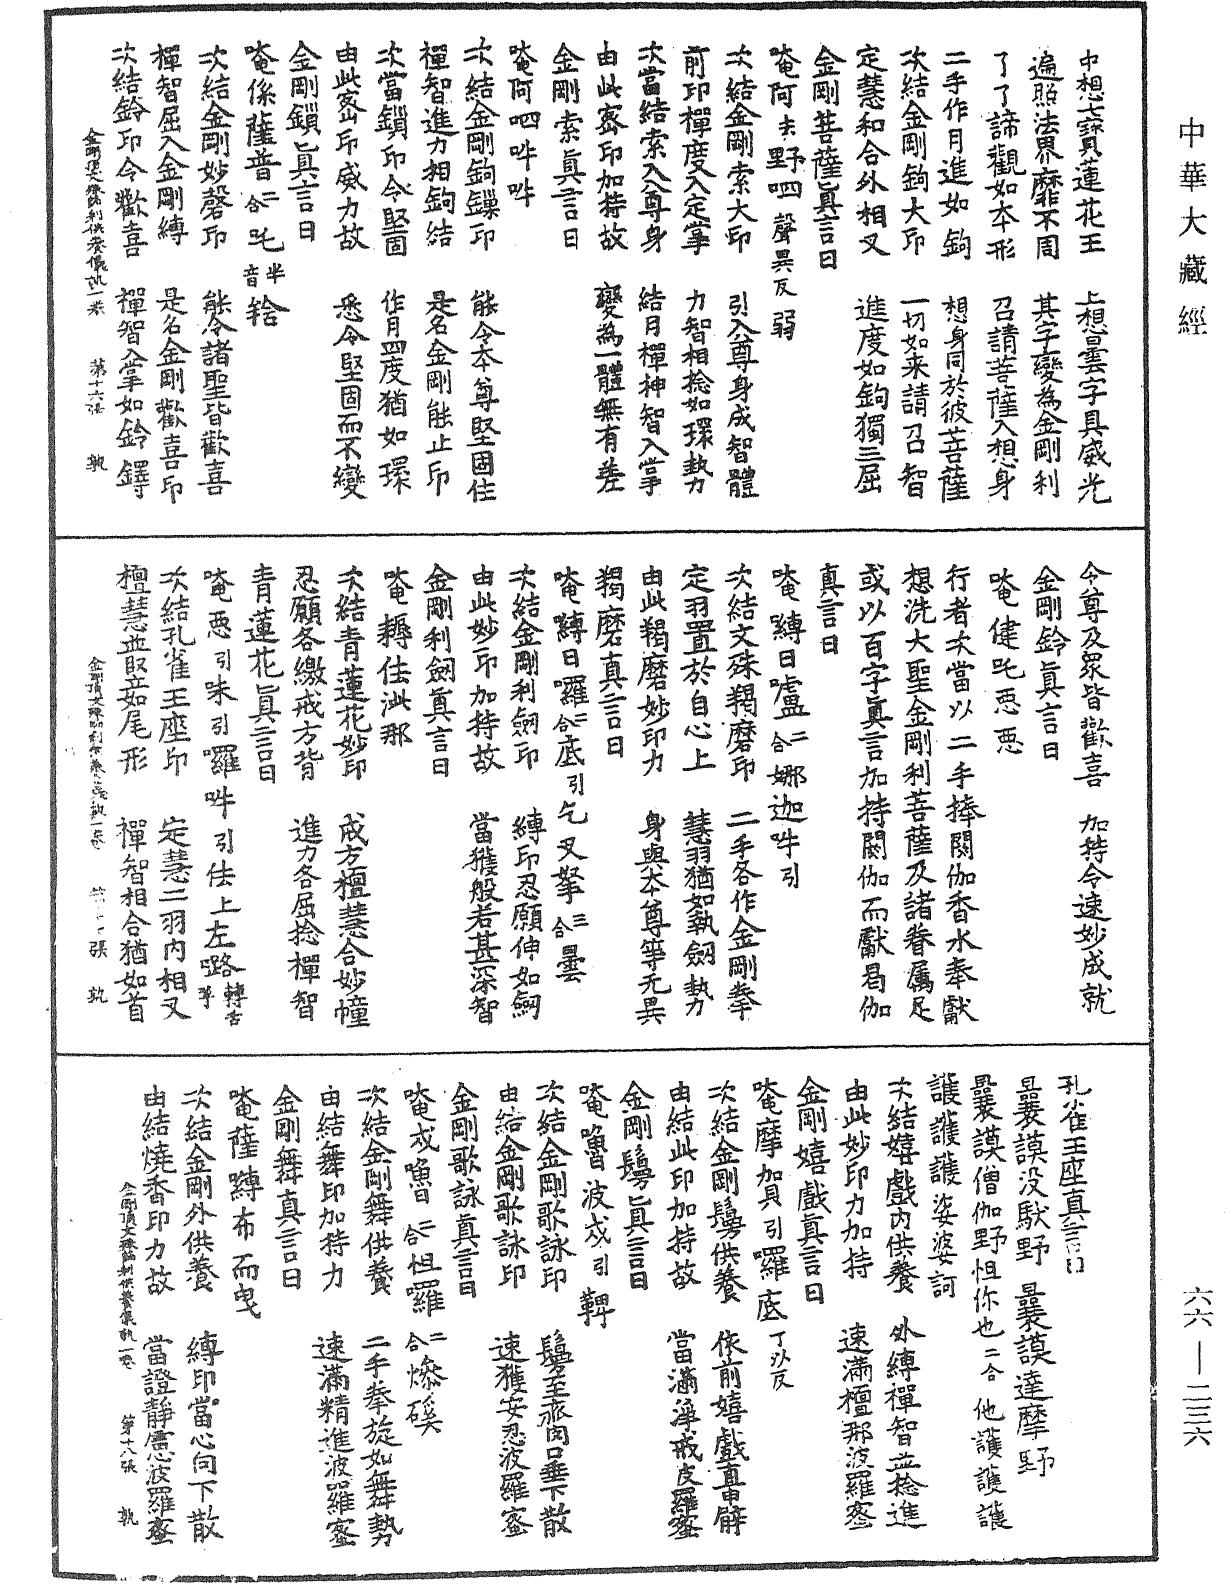 中華大藏經
中想七寶蓮花王　上想曇字具威光
遍照法界靡不周　其字變為金剛利
了了諦觀如本形　召請菩薩入想身
二手作月進如鉤　想身同於彼菩薩
次結金剛鉤大印　一切如来請召智
定慧和合外相叉　進度如鉤獨三屈
金剛菩薩真言曰
唵阿去野呬聲異反弱
次結金剛索大印　引入尊身成智體
前印禪度入定掌　力智相捻如環勢
次當結索入尊身　結月禪神智入掌
由此密印加持故　變為一體無有差
金剛索真言曰
唵阿呬吽吽
次結金剛鉤鏁印　能令本尊堅固住
禪智進力相鉤結　是名金剛能止印
次當鎖印令堅固　作月四度猶如環
由此密印威力故　悉令堅固而不變
金剛鎖真言曰
唵係薩普二合吒半音𤙖
次結金剛妙磬印　能令諸聖皆歡喜
禪智屈入金剛縛　是名金剛歡喜印
次結鈴印令歡喜　禪智入掌如鈴鐸
金剛頂文殊師利供養儀軌一卷　第十六張　孰
令尊及眾皆歡喜　加持令速妙成就
金剛鈴真言曰
唵健吒惡惡
行者次當以二手捧閼伽香水奉獻
想洗大聖金剛利菩薩及諸眷屬足
或以百字真言加持閼伽而獻閼伽
真言曰
唵縛日嚧二合娜迦吽引
次結文殊羯磨印　二手各作金剛拳
定羽置於自心上　慧羽猶如執劒勢
由此羯磨妙印力　身與本尊等无異
羯磨真言曰
唵縛日囉二合底引乞叉拏三合曇
次結金剛利劒印　縛印忍願伸如劒
由此妙印加持故　當獲般若甚深智
金剛利劒真言曰
唵耨佉泚那
次結青蓮花妙印　戒方檀慧合妙幢
忍願各繳戒方背　進力各屈捻禪智
青蓮花真言曰
唵惡引味引囉吽引佉上左𡀔轉舌等
次結孔雀王座印　定慧二羽內相叉
檀慧並竪如尾形　禪智相合猶如首
金剛頂文殊師利供養儀軌一卷　第十七張　孰
孔雀王座真言曰
曩謨没馱野　曩謨達摩野
曩謨僧伽野怛你也二合他護護護
護護護娑婆訶
次結嬉戲內供養　外縛禪智並捻進
由此妙印力加持　速滿檀那波羅蜜
金剛嬉戲真言曰
唵摩加貝引囉底丁以反
次結金剛鬘供養　依前嬉戲直申臂
由結此印加持故　當滿淨戒波羅蜜
金剛鬘真言曰
唵嚕波戍引鞞
次結金剛歌詠印　鬘至齊向口垂下散
由結金剛歌詠印　速獲安忍波羅蜜
金剛歌詠真言曰
唵戍嚕二合怛羅二合燥谿
次結金剛舞供養　二手拳旋如舞勢
由結舞印加持力　速滿精進波羅蜜
金剛舞真言曰
唵薩縛布而曳
次結金剛外供養　縛印當心向下散
由結燒香印力故　當證靜慮波羅蜜
金剛頂文殊師利供養儀軌一卷　第十八張　孰
六六—二三六